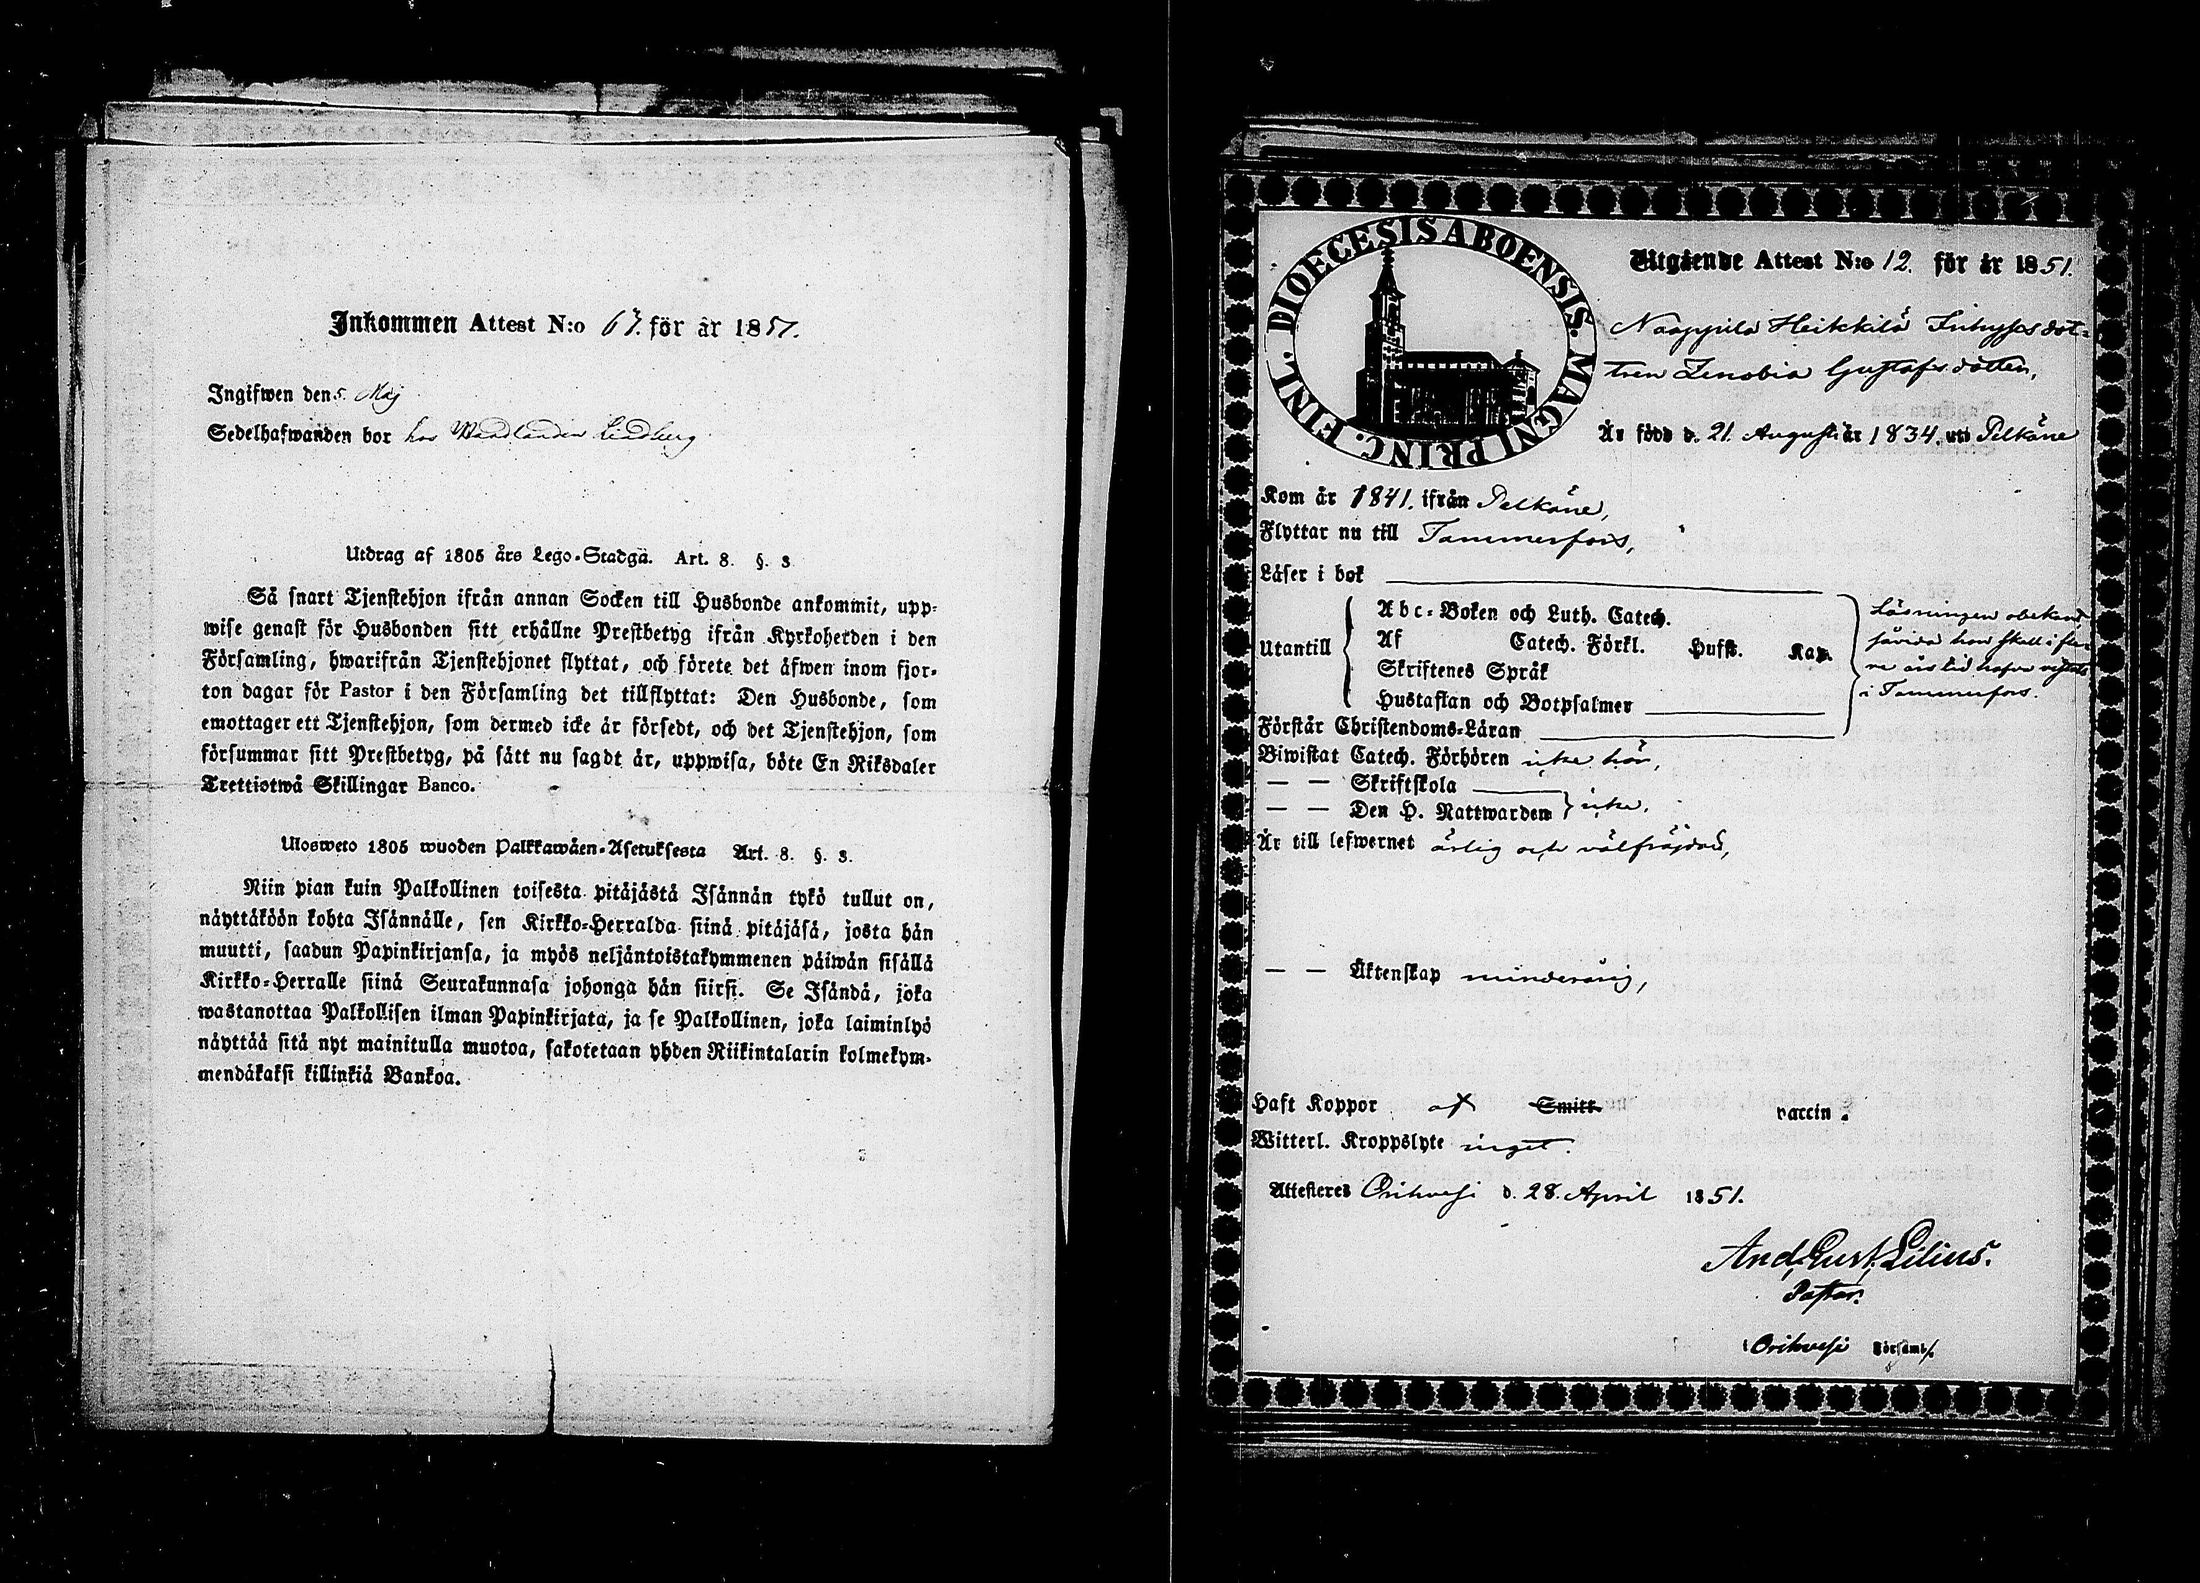 Inkommen Attest N:o 67. för år 1851.
Ingifwen den 5. Maj
Sedelhafwanden bor hos Lindberg
Utdrag af 1805 års Lego-Stadga. Art. 8. §. 3
Så snart Tjenstehjon ifrån annan Socken till Husbonde ankommit, upp-
wise genast för Husbonden sitt erhållne Prestbetyg ifrån Kyrkoherden i den
Församling, hwarifrån Tjenstehjonet flyttat, och förete det äfwen inom fjor-
ton dagar för Pastor i den Församling det tillflyttat: Den Husbonde, som
emottager ett Tjenstehjon, som dermed icke är försedt, och det Tjenstehjon, som
försummar sitt Prestbetyg, på sätt nu sagdt är, uppwisa, böte En Riksdaler
Trettiotwå Skillingar Banco.
Ulosweto 1805 wuoden Palkkawäen-Asetuksesta Art. 8. §. 3.
Niin pian kuin Palkollinen toisesta pitäjästä Isännän tykö tullut on,
näyttäköön kohta Isännälle, sen Kirkko-Herralda siinä pitäjäsä, josta hän
muutti, saadun Papinkirjansa, ja myös neljäntoistakymmenen päiwän sisällä
Kirkko-Herralle siinä Seurakunnasa johonga hän siirsi. Se Isändä, joka
wastanottaa Palkollisen ilman Papinkirjata, ja se Palkollinen, joka laiminlyö
näyttää sitä nyt mainitulla muotoa, sakotetaan yhden Riikintalarin kolmekym-
mendäkaksi killinkiä Bankoa.
DIOECESIS ABOENSIS. MAGNI PRINC. FINL.
Utgående Attest N:o 12. för år 1851.
Naappila Heikkilä Inhysesdot-
tren Zenobia Gustafsdotter,
Är född d. 21. Augusti år 1834. uti Pelkäne
Kom år 1841. ifrån Pelkäne,
Flyttar nu till Tammerfors,
Läser i bok
Utantill
Abc-Boken och Luth. Catech.
Af Catech. Förkl. Hufst. Kap.
Skriftenes Språk
Hustaflan och Botpsalmer
Läsningen obekant,
hon skall i fle-
re års tid hafva vistats
i Tammerfors.
Förstår Christendoms-Läran
Biwistat Catech. Förhören icke här,
— — Skriftskola
— — Den H. Nattwarden } icke.
Är till lefwernet ärlig och välfräjdad,
— — Äktenskap minderårig,
Haft Koppor af Smitt. vaccin.
Witterl. Kroppslyte inget.
Attesteres Orihvesi d. 28. April 1851.
And. Gust. Lilius.
Pastor.
i Orihvesi Församl.